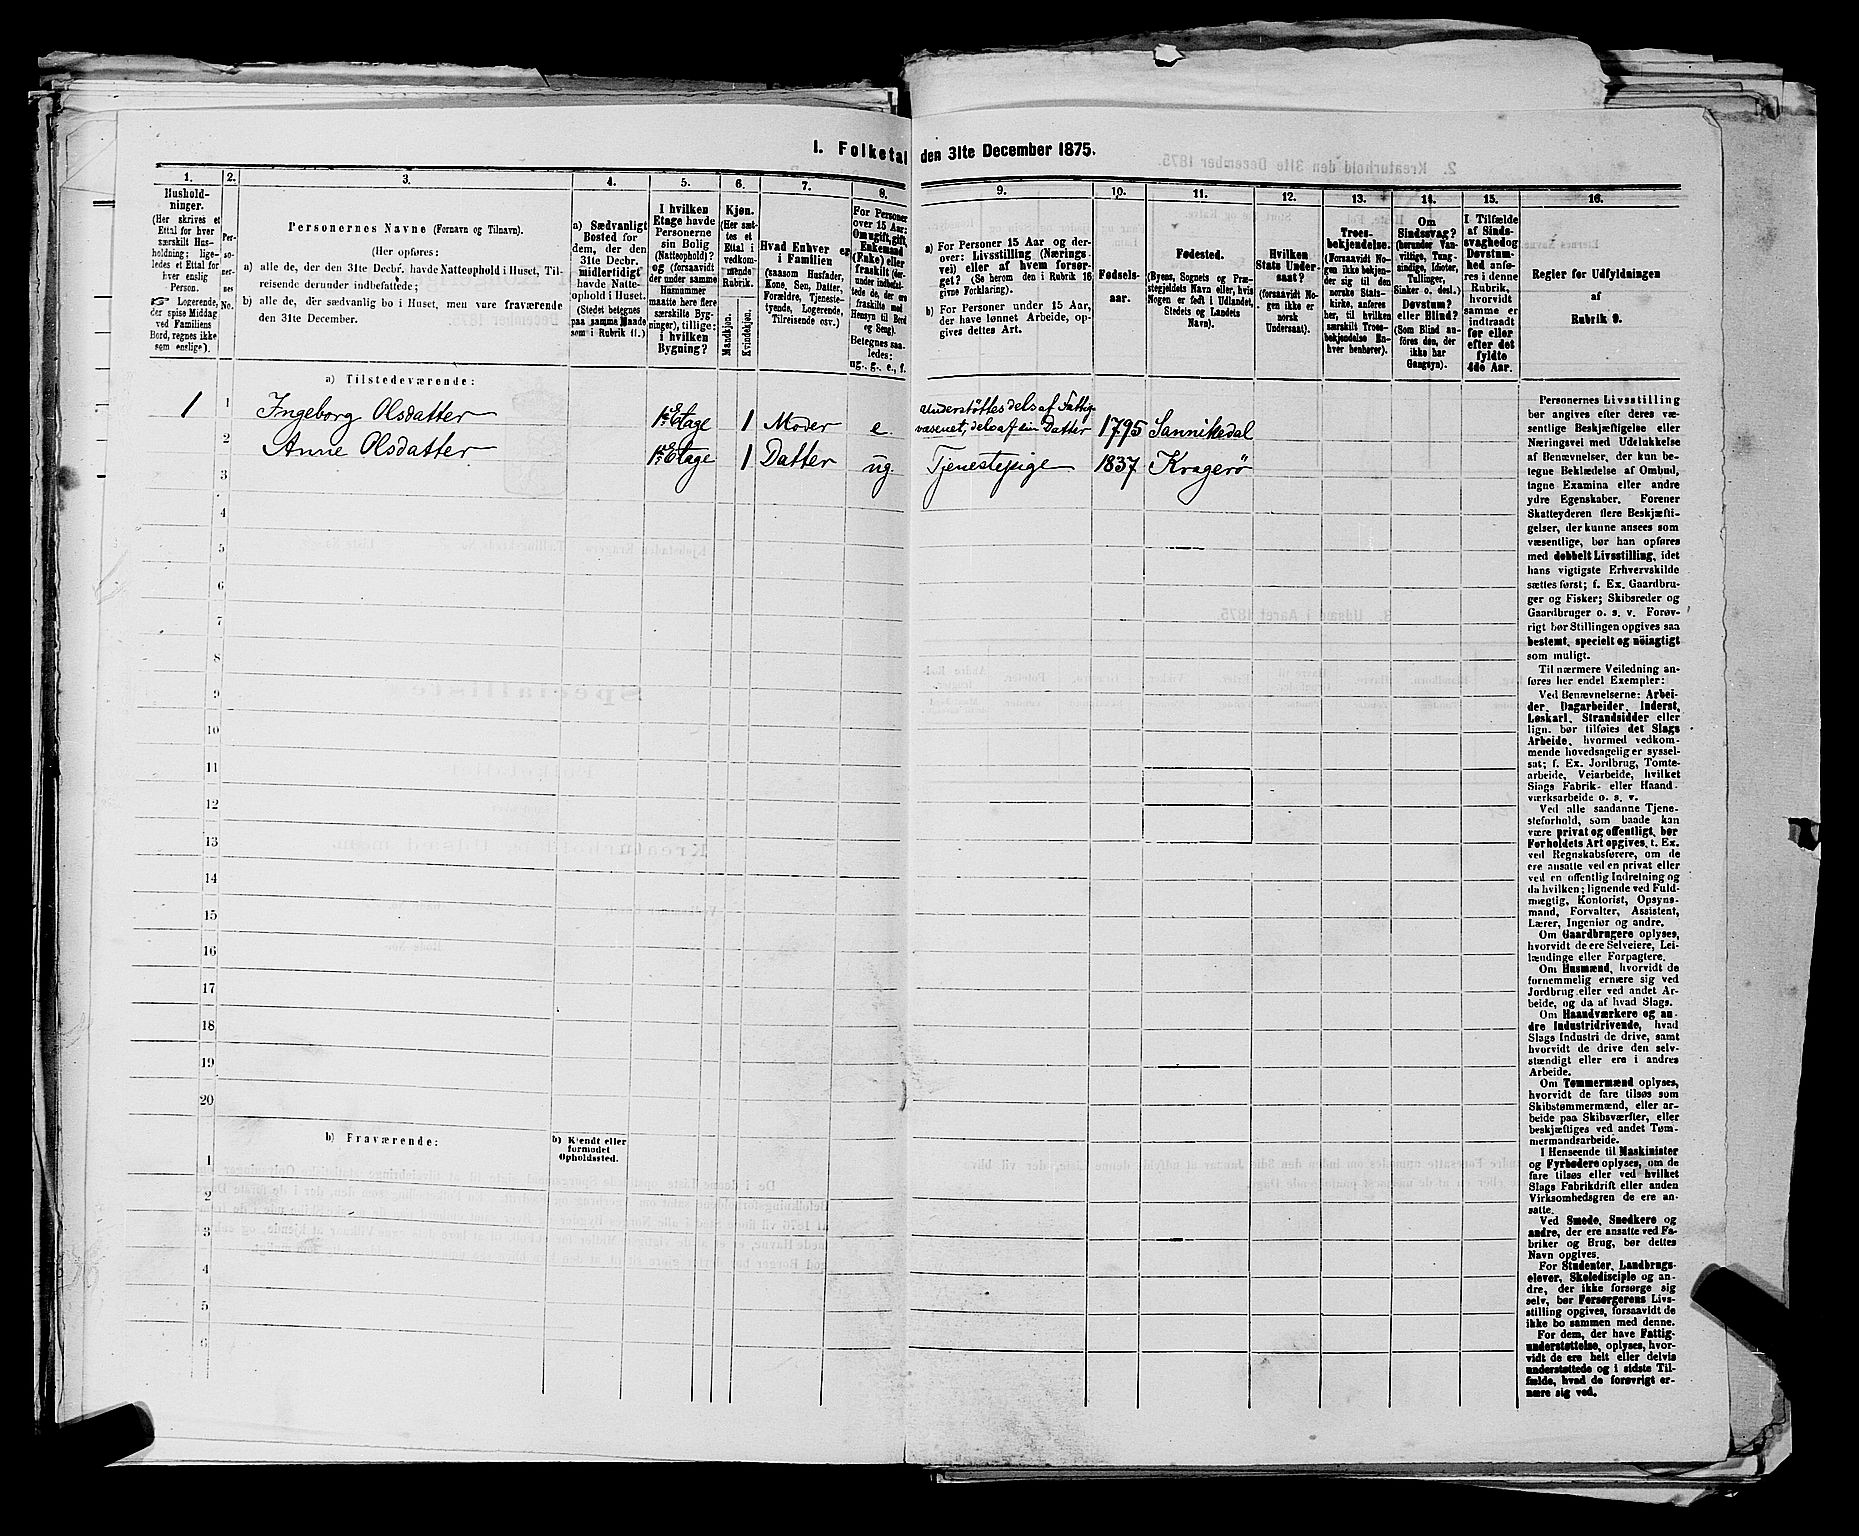 1. Folketal den 31te December 1875.
1. 2. 3. 4. 5. 6. 7. 8. 9. 10. 11. 12. 13. 14. 15. 16.
Hushold-
ninger.
(Her skrives et
Ettal for hver
særskilt Hus-
holdning; lige-
ledes et Ettal for
hver enslig
Person.
☞ Logerende,
der spise Middag
ved Familiens
Bord, regnes ikke
som enslige).
Per-
so-
ner-
nes
No.
Personernes Navne (Fornavn og Tilnavn).
(Her opføres:
a) alle de, der den 31te Decbr. havde Natteophold i Huset, Til-
reisende derunder indbefattede;
b) alle de, der sædvanlig bo i Huset, men vare fraværende
den 31te December.
a) Sædvanligt
Bosted for
dem, der den
31te Decbr.
midlertidigt
havde Natte-
ophold i Huset.
(Stedet betegnes
paa samme Maade
som i Rubrik 11.)
I hvilken
Etage havde
Personerne
sin Bolig
(Natteophold)?
og (forsaavidt
der under samme
Husnummer
maatte høre flere
særskilte Byg-
ninger), tillige:
i hvilken
Bygning?
Kjøn.
(Her sæt-
tes et
Ettal i
vedkom-
mende
Rubrik.
Mandkjøn.
Kvindekjøn.
Hvad Enhver er
i Familien
(saasom Husfader,
Kone, Søn, Datter,
Forældre, Tjeneste-
tyende, Logerende,
Tilreisende osv.)
For Personer
over 15 Aar:
Om ugift, gift,
Enkemand
(Enke) eller
fraskilt (der-
under indbefat-
tede de, der ere
fraskilte med
Hensyn til Bord
og Seng).
Betegnes saa-
ledes:
ug., g., e., f.
a) For Personer 15 Aar og der-
over: Livsstilling (Nærings-
vei) eller af hvem forsør-
get? (Se herom den i Rubrik 16
givne Forklaring).
b) For Personer under 15 Aar,
der have lønnet Arbeide, op-
gives dettes Art.
Fødsels-
aar.
Fødested.
(Byens, Sognets og Præ-
stegjeldets Navn eller, hvis
Nogen er født i Udlandet,
Stedets og Landets
Navn).
Hvilken
Stats Under-
saat?
(forsaavidt No-
gen ikke er
norsk
Undersaat).
Troes-
bekjendelse.
(Forsaavidt No-
gen ikke bekjen-
der sig til den
norske Stats-
kirke, anføres
her, til hvilken
særskilt Troes-
bekjendelse En-
hver henhører).
Om
Sindssvag?
(herunder Van-
vittige, Tung-
sindige, Idioter,
Tullinger,
Sinker o. desl.)
Døvstum?
eller Blind?
(Som Blind an-
føres den, der
ikke har
Gangsyn).
I Tilfælde
af Sinds-
svaghed og
Døvstum-
hed anfø-
res i denne
Rubrik,
hvorvidt
samme er
indtraadt
før eller
efter det
fyldte
4de Aar.
Regler for Udfyldningen
af
Rubrik 9.
a) Tilstedeværende:
1 1 Ingeborg Olsdatter 1ste Etage 1 Moder e. Understøttes dels af Fattig-
væsenet, dels af sin Datter 1795 Sannikedal
2 Anne Olsdatter 1ste Etage 1 Datter ug Tjenestepige 1837 Kragerø
3
4
5
6
7
8
9
10
11
12
13
14
15
16
17
18
19
20
b) Fraværende:
b) Kjendt eller
formodet
Opholdssted.
1
2
3
4
5
6
Personernes Livsstilling
bør angives efter deres væ-
sentlige Beskjæftigelse eller
Næringsvei med Udelukkelse
af Benævnelser, der kun be-
tegne Beklædelse af Ombud,
tagne Examina eller andre
ydre Egenskaber. Forener
Skatteyderen flere Beskjæfti-
gelser, der kunne ansees som
væsentlige, bør han opføres
med dobbelt Livsstilling, idet
hans vigtigste Erhvervskilde
sættes først; f. Ex. Gaardbru-
ger og Fisker; Skibsreder og
Gaardbruger o. s. v. Forøv-
rigt bør Stillingen opgives saa
bestemt, specielt og nøiagtigt
som muligt.
Til nærmere Veiledning an-
føres her endel Exempler:
Ved Benævnelserne: Arbei-
der, Dagarbeider, Inderst,
Løskarl, Strandsidder eller
lign. bør tilføies det Slags
Arbeide, hvormed vedkom-
mende hovedsagelig er syssel-
sat; f. Ex. Jordbrug, Tomte-
arbeide, Veiarbeide, hvilket
Slags Fabrik- eller Haand-
værksarbeide o. s. v.
Ved alle saadanne Tjene-
steforhold, som baade kan
være privat og offentligt, bør
Forholdets Art opgives, t. Ex.
ved Regnskabsførere, om de
ere ansatte ved en privat eller
ved en offentlig Indretning og
da hvilken; lignende ved Fuld-
mægtig, Kontorist, Opsyns-
mand, Forvalter, Assistent,
Lærer, Ingeniør og andre.
Om Gaardbrugere oplyses,
hvorvidt de ere Selveiere, Lei-
lændinge eller Forpagtere.
Om Husmænd, hvorvidt de
fornemmelig ernære sig ved
Jordbrug eller ved andet Ar-
beide, og da af hvad Slags.
Om Haandværkere og an-
dre Industridrivende, hvad
Slags Industri de drive, samt
hvorvidt de drive den selv-
stændigt eller ere i andres
Arbeide.
Om Tømmermænd oplyses,
hvorvidt de fare tilsøs som
Skibstømmermænd, eller ar-
beide paa Skibsværfter, eller
beskjæftiges ved andet Tøm-
mermandsarbeide.
I Henseende til Maskinister
og Fyrbødere oplyses, om de
fare tilsøs eller ved hvilket
Slags Fabrikdrift eller anden
Virksomhedsgren de ere an-
satte.
Ved Smede, Snedkere og
andre, der ere ansatte ved Fa-
briker og Brug, bør dettes
Navn opgives.
For Studenter, Landbrugs-
elever, Skoledisciple og an-
dre, der ikke forsørge sig
selv, bør Forsørgerens Livs-
stilling opgives, forsaavidt de
ikke bo sammen med denne.
For dem, der have Fattig-
understøttelse, oplyses, hvor-
vidt de ere helt eller delvis
understøttede og i sidste Til-
fælde, hvad de forøvrigt er-
nære sig ved.